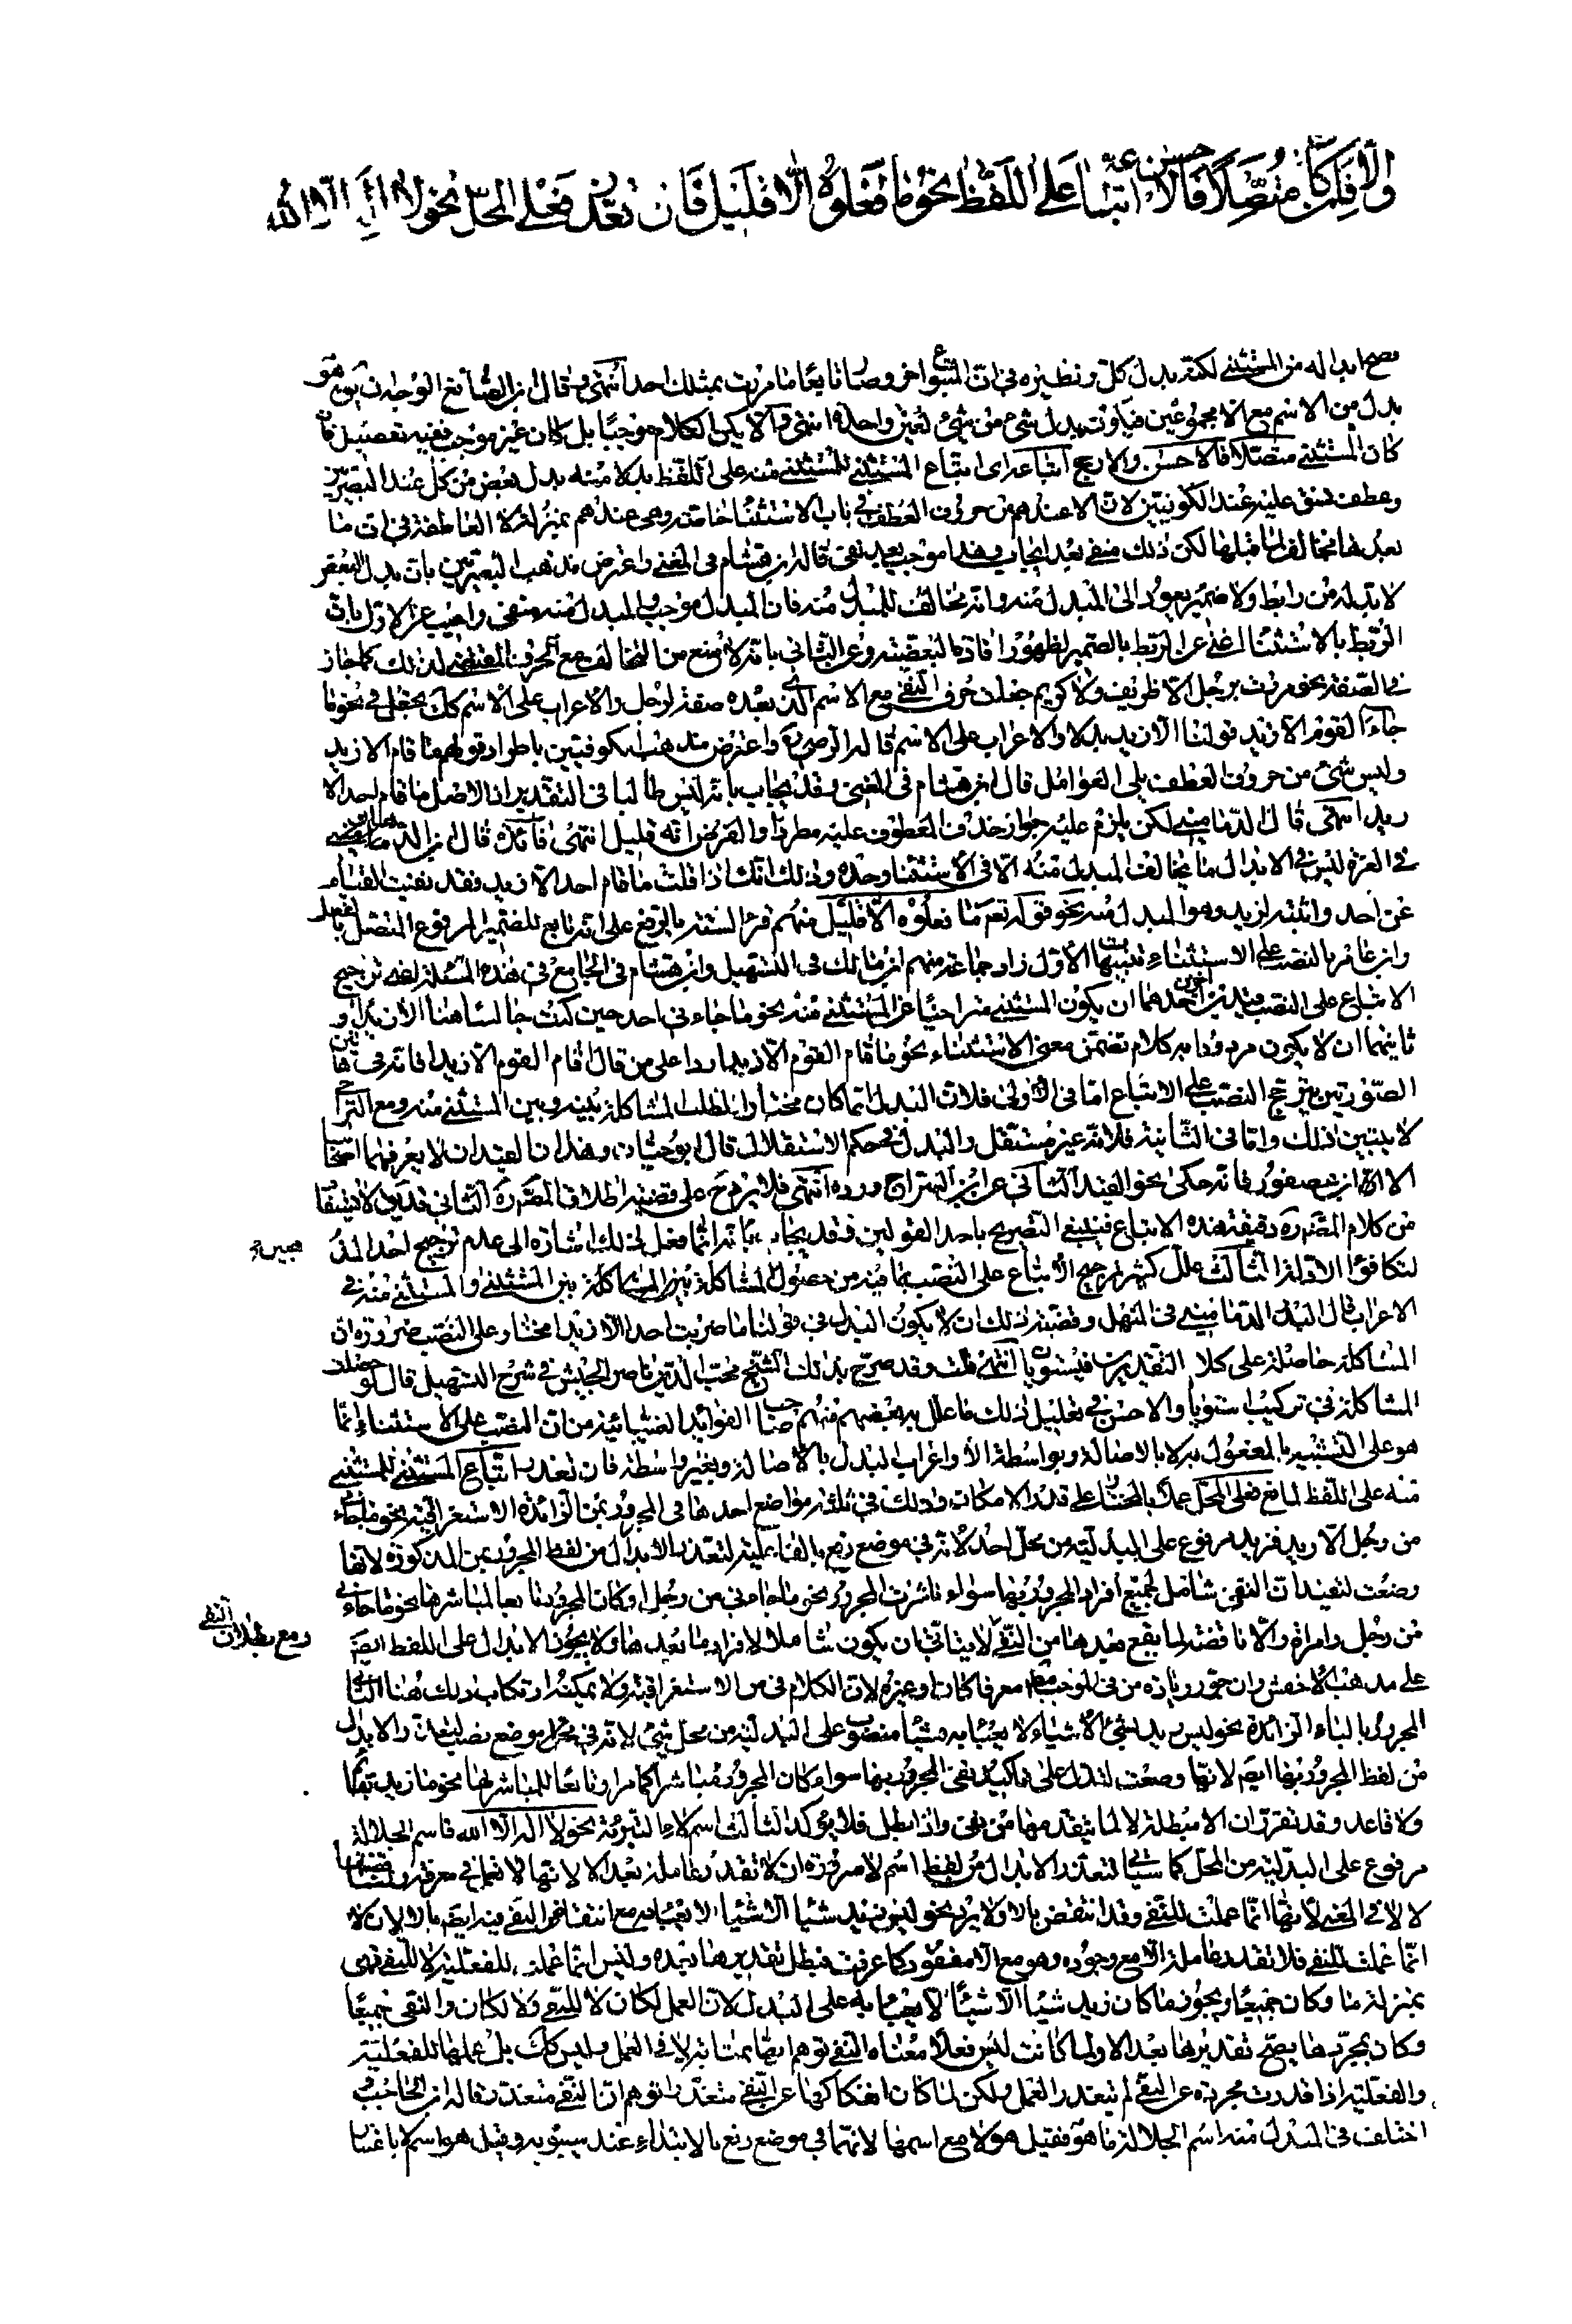 والا فان كان متصلا فالاحسن اتباعه على اللفظ نحو ما فعلوه الا قليل فان تعذر فعلى المحل نحو لا اله الا الله
فصح ابداله من المستثنى لكنه بدل كل ونظيره في ان المتبوع اخر وصار تابعا ما مررت بمثلك احد انتهى وقال ابن الضائع الوجه ان يق هو
بدل من الاسم مع الا مجموعين فيكون بدل شئ من شئ لعين واحدة انتهى والا يكن الكلام موجبا بل كان غير موجب ففيه تفصيل فان
كان المستثنى متصلا فالاحسن والارجح اتباعه اى اتباع المستثنى للمستثنى منه على اللفظ بدلا منه بدل بعض من كل عند البصريين
وعطف نسق عليه عند الكوفيين لان الا عندهم من حروف العطف في باب الاستثناء خاصة وهي عندهم بمنزلة لا العاطفة في ان ما
بعدها مخالف لما قبلها لكن ذلك منفي بعد ايجاب وهذا موجب بعد نفي قاله ابن هشام في المغني واعترض مذهب البصريين بان بدل البعض
لا بد له من رابط ولا ضمير يعود الى المبدل منه وانه مخالف للمبدل منه فان المبدل موجب والمبدل منه منفي واجيب عن الاول بان
الربط بالاستثناء اغنى عن الربط بالضمير لظهور افادة البعضية وعن الثاني بانه لا يمنع من التخالف مع الحرف المقتضى لذلك كما جاز
في الصفة نحو مررت برجل لا ظريف ولا كريم جعلت حرف النفي مع الاسم الذي بعده صفة لرجل والاعراب على الاسم كك يجعل في نحو ما
جاء القوم الا زيد قولنا الا زيد بدلا والاعراب على الاسم قاله الرضي واعترض مذهب الكوفيين باطراد قولهم ما قام الا زيد
وليس شئ من حروف العطف يلى العوامل قال ابن هشام في المغني وقد يجاب بانه ليس تاليا في التقدير اذ الاصل ما قام احد الا
زيد انتهى قال الدماميني لكن يلزم عليه جواز حذف المعطوف عليه مطردا والفرض انه قليل انتهى فائدة قال ابن الدهان
في الغرة ليس في الابدال ما يخالف المبدل منه الا في الاستثناء وحده وذلك انك اذا قلت ما قام احد الا زيد فقد نفيت القيام
عن احد واثبته لزيد وهو المبدل منه نحو قوله تعم ما فعلوه الا قليل منهم قرأ الستة بالرفع على انه تابع للضمير المرفوع المتصل بالفعل
وابن عامر بالنصب على الاستثناء تنبيهات الاول زاد جماعة منهم ابن مالك في التسهيل وابن هشام في الجامع في هذه المسئلة لترجيح
الاتباع على النصب قيدين احدهما ان لا يكون المستثنى متراخيا عن المستثنى منه نحو ما جاءني احد حين كنت جالسا هنا الا زيدا و
ثانيهما ان لا يكون مردودا به كلام تضمن معنى الاستثناء نحو ما قام القوم الا زيدا ردا على من قال قام القوم الا زيدا فانه في هاتين
الصورتين يترجح النصب على الاتباع اما في الاولى فلان البدل انما كان مختارا لطلب المشاكلة بينه وبين المستثنى منه ومع التراخي
لا يتبين ذلك واما في الثانية فلانه غير مستقل والبدل في حكم الاستقلال قال ابو حيان وهذان القيدان لا يعرفهما اصحابنا
الا ان ابن عصفور فانه حكى نحو القيد الثاني عن ابن السراج ورده انتهى
من كلام المصنف
لتكافؤ الادلة الثالث علل كثير ترجيح الاتباع على النصب بما فيه من حصول المشاكلة بين المستثنى والمستثنى منه في
الاعراب قال البدر الدماميني في المنهل وقضية ذلك ان لا يكون البدل في قولنا ما ضربت احدا الا زيدا مختارا على النصب ضرورة ان
المشاكلة حاصلة على كلا التقديرين فيستويان انتهى قلت وقد صرح بذلك الشيخ محب الدين ناظر الجيش في شرح التسهيل قال لو حصلت
المشاكلة في تركيب استويا والاحسن في تعليل ذلك ما علل به بعضهم منهم صاحب الفوائد الضيائية من ان النصب على الاستثناء انما
هو على التشبيه بالمفعول به لا بالاصالة وبواسطة الا واعراب البدل بالاصالة وبغير واسطة فان تعذر اتباع المستثنى للمستثنى
منه على اللفظ لمانع فعلى المحل عملا بالمختار على قدر الامكان وذلك في ثلثة مواضع احدها في المجرور بمن الزائدة الاستغراقية نحو ما جاءني
من رجل الا زيد فزيد مرفوع على البدلية من محل احد لانه في موضع رفع بالفاعلية لتعذر الابدال من لفظ المجرور بمن المذكورة لانها
وضعت لتفيد ان النفي شامل لجميع افراد المجرور بها سواء باشرت المجرور نحو ما جاءني من رجل او كان المجرور تابعا لمباشرها نحو ما جاءني
من رجل وامراة والا ناقضة لما يقع بعدها من النفي ومع بطلان النفي لا يتأتى ان يكون شاملا لافراد ما بعدها ولا يجوز الابدال على اللفظ ايضا
على مذهب الاخفش وان جوز زيادة من في الموجب معرفا كان او غيره لان الكلام في من الاستغراقية ولا يمكنه ارتكاب ذلك هنا الثاني
المجرور بالباء الزائدة نحو ليس زيد بشئ الا شيئا لا يعبأ به فشيئا منصوب على البدلية من محل شئ لانه في موضع نصب بليس والابدال
من لفظ المجرور بها ايضا لانها وضعت لتدل على تاكيد نفي المجرور بها سواء كان المجرور مباشرا كما مر او تابعا للمباشر لها نحو ما زيد بقائم
ولا قاعد وقد تقرر ان الا مبطلة لما يتقدمها من نفي واذا بطل فلا يؤكد الثالث اسم لا التبرئة نحو لا اله الا الله فاسم الجلالة
مرفوع على البدلية من المحل كما سيأتي لتعذر الابدال من لفظ اسم لا ضرورة ان لا تقدر عاملة بعد الا لانها لا تعمل في معرفة
لا لا في الخبر لانها انما عملت للنفي وقد انتقض بالا ولا يرد نحو ليس زيد شيئا الا شيئا لا يعبأ به مع انتقاض النفي فيه ايضا بالا لان لا
انما عملت للنفي فلا تقدر عاملة الا مع وجوده وهو مع الا مفقود كما عرفت فبطل تقديرها بعده وليس انما عملت للفعلية لا للنفي فهي
بمنزلة ما وكان جميعا ويجوز ما كان زيد شيئا الا شيئا لا يعبأ به على البدل لان العمل لكان لا للنفي ولا لكان والنفي جميعا
وكان بمجردها يصح تقديرها بعد الا ولما كانت ليس فعلا معناه النفي توهم انها بمثابة لا في العمل وليس كك بل عملها للفعلية
والفعلية اذا قدرت مجردة عن النفي لم يتعذر العمل ولكن لما كان انفكاكها عن النفي متعذرا توهم ان النفي متعذر قاله ابن الحاجب و
اختلف في المبدل منه اسم الجلالة ما هو فقيل هو لا مع اسمها لانهما في موضع رفع بالابتداء عند سيبويه وقيل هو اسم لا باعتبار